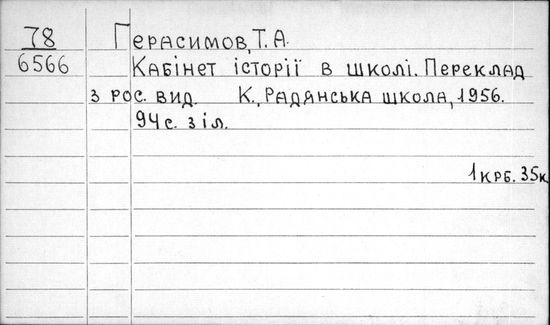 78
6566
Герасимов, Т.А.
Кабінет історії в школі. Переклад
з рос. вид. К., Радянська школа, 1956.
94 с. з іл.
1 крб. 35к